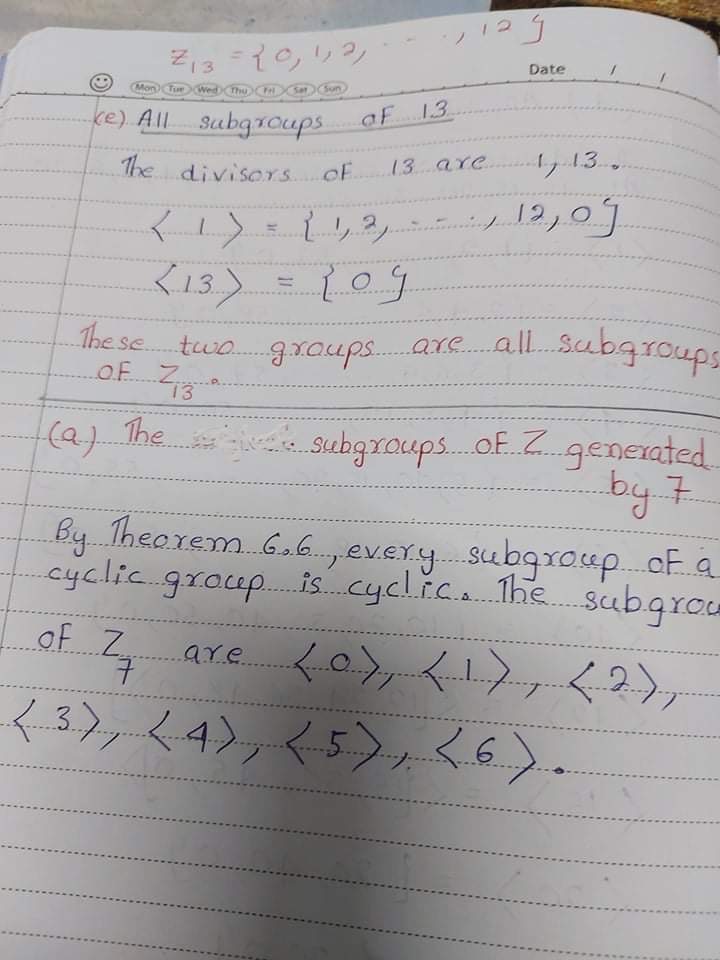 Z13 = {0, 1, 2, - - - ., 12}
Date / /
Mon Tue Wed Thu Fri Sat Sun
(e) All subgroups of 13
The divisors of 13 are 1, 13.
<1> = {1, 2, - - - ., 12, 0}
<13> = {0}
These two groups are all subgroups
of Z13.
(a) The subgroups of Z generated
by 7
By Theorem 6.6, every subgroup of a
cyclic group is cyclic. The subgrou
of Z7 are <0>, <1>, <2>,
<3>, <4>, <5>, <6>.